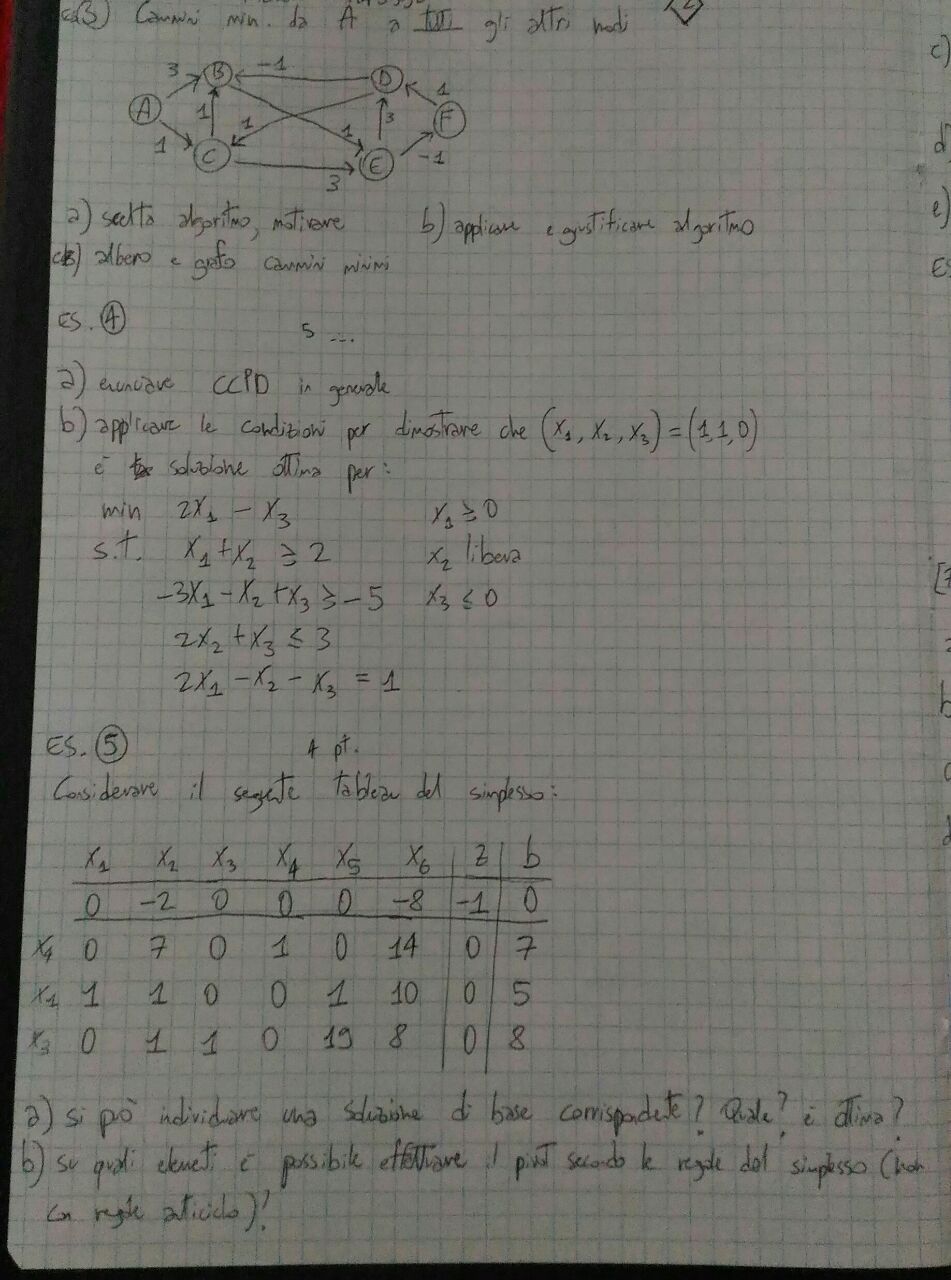 Cammini min. da A a tutti gli altri nodi
2
3 B -1 D 1
A 1 1 1 3 F
1 C 3 E -1
a) scelta algoritmo, motivare b) applicare e giustificare algoritmo
c) albero e grafo cammini minimi
ES. 4 5 ...
a) enunciare CCPD in generale
b) applicare le condizioni per dimostrare che (x₁, x₂, x₃) = (1,1,0)
è soluzione ottima per:
min 2x₁ - x₃ x₁ ≥ 0
s.t. x₁ + x₂ ≥ 2 x₂ libera
-3x₁ - x₂ + x₃ ≥ -5 x₃ ≤ 0
2x₂ + x₃ ≤ 3
2x₁ - x₂ - x₃ = 1
ES. 5 4 pt.
Considerare il segente tableau del simplesso:
x₁ x₂ x₃ x₄ x₅ x₆ z b
0 -2 0 0 0 -8 -1 0
x₄ 0 7 0 1 0 14 0 7
x₁ 1 1 0 0 1 10 0 5
x₃ 0 1 1 0 19 8 0 8
a) si può individuare una soluzione di base corrispondete? Quale? è ottima?
b) su quali elemeti è possibile effettuare il pivot secondo le regole del simplesso (non
con regole aticiclo)?
c)
d
e)
ES
b